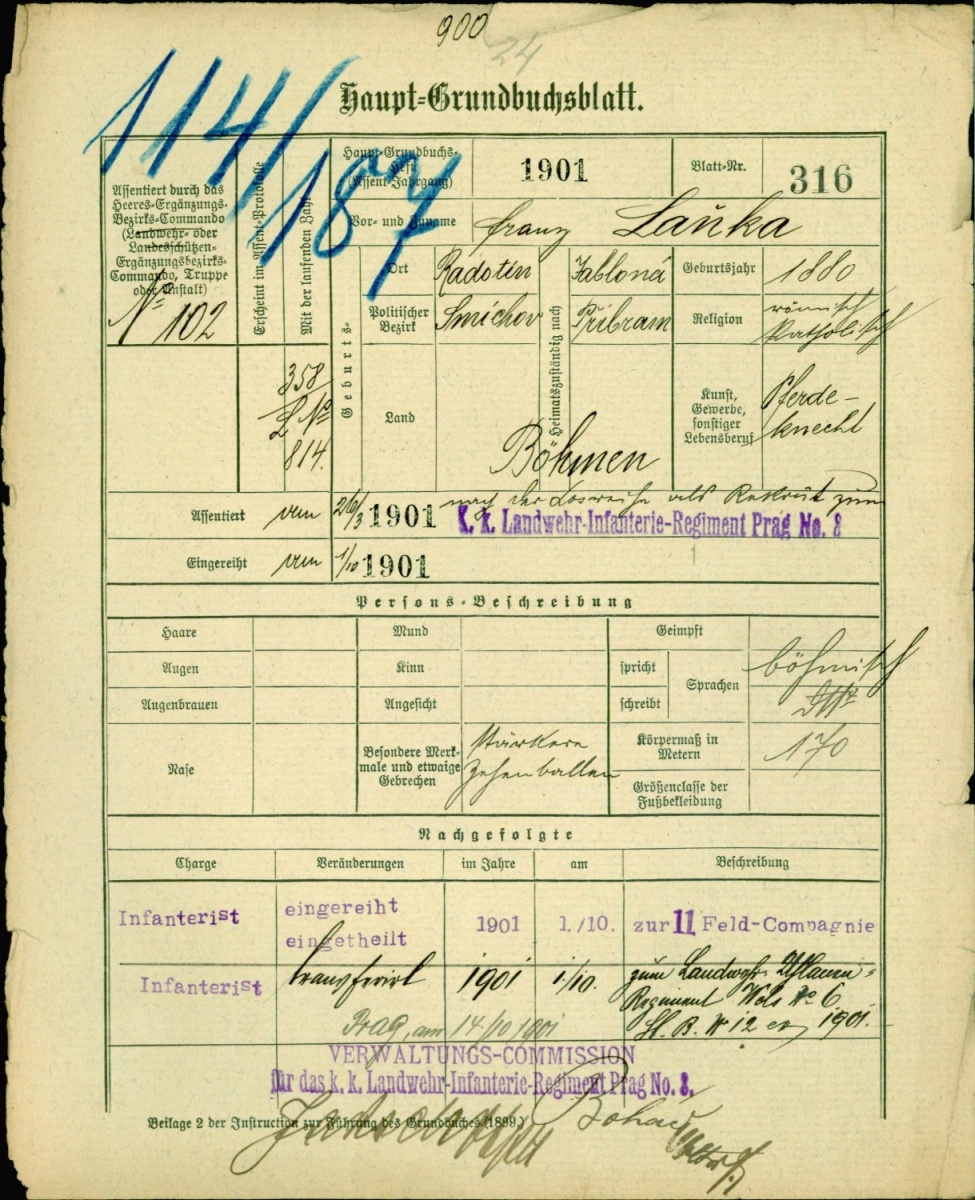 900
24
114/187
Haupt-Grundbuchsblatt.
Assentiert durch das
Heeres-Ergänzungs-
Bezirks-Commando
(Landwehr- oder
Landesschützen-
Ergänzungsbezirks-
Commando, Truppe
oder Anstalt)
No 102
Erscheint im Assent-Protokolle
Mit der laufenden Zahl
358
L No
814.
Haupt-Grundbuchs-
Heft
(Assent-Jahrgang)
1901
Blatt-Nr.
316
Vor- und Zuname
Franz Laňka
Geburts-
Ort
Radotin
Heimatszuständig nach
Jabloná
Geburtsjahr
1880
Politischer
Bezirk
Smichov
Přibram
Religion
römisch
katholisch
Land
Böhmen
Kunst,
Gewerbe,
sonstiger
Lebensberuf
Pferde-
knecht
Assentiert am 26/3 1901 nach der Losreihe als Rekrut zum
K. k. Landwehr-Infanterie-Regiment Prag No. 8
Eingereiht am 1/10 1901
Persons-Beschreibung
Haare
Mund
Geimpft
Augen
Kinn
spricht
Sprachen
böhmisch
Augenbrauen
Angesicht
schreibt
Nase
Besondere Merk-
male und etwaige
Gebrechen
stärkere
Zehenballen
Körpermaß in
Metern
170
Größenclasse der
Fußbekleidung
Nachgefolgte
Charge Veränderungen im Jahre am Beschreibung
Infanterist eingereiht
eingetheilt 1901 1./10. zur 11 Feld-Compagnie
Infanterist transferirt 1901 1/10. zum Landwehr-Uhlanen-
Regiment Wels No 6
1901.
Prag, am 14/10 1901
VERWALTUNGS-COMMISSION
für das k. k. Landwehr-Infanterie-Regiment Prag No. 8.
Beilage 2 der Instruction zur Führung des Grundbuches (1899.)